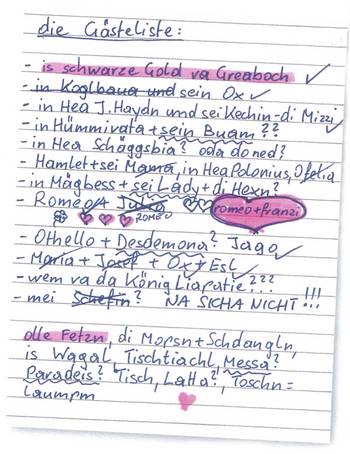 die Gästeliste:
- is schwarze Gold va Greaboch ✓
- in Koglbaua und sein Ox ✓
- in Hea J. Haydn und sei Kechin - di Mizzi ✓
- in Hümmivata + sein Buam??
- in Hea Schäggsbia? oda do ned?
- Hamlet + sei Mama, in Hea Polonius, Ofelia
- in Mägbess + sei Lady + di Hexn?
- Romeo + Julia romeo + franzi
ROMEO
- Othello + Desdemona? Jago ✓
- Maria + Josef + Ox + Esl ✓
- wem va da König Liapatie???
- mei Schefin? NA SICHA NICHT!!!
olle Fetzn, di Mopsn + Schdangln,
is Wagal, Tischtiachl, Messa?
Paradeis? Tisch, Latta?, Toschn=
laumpm